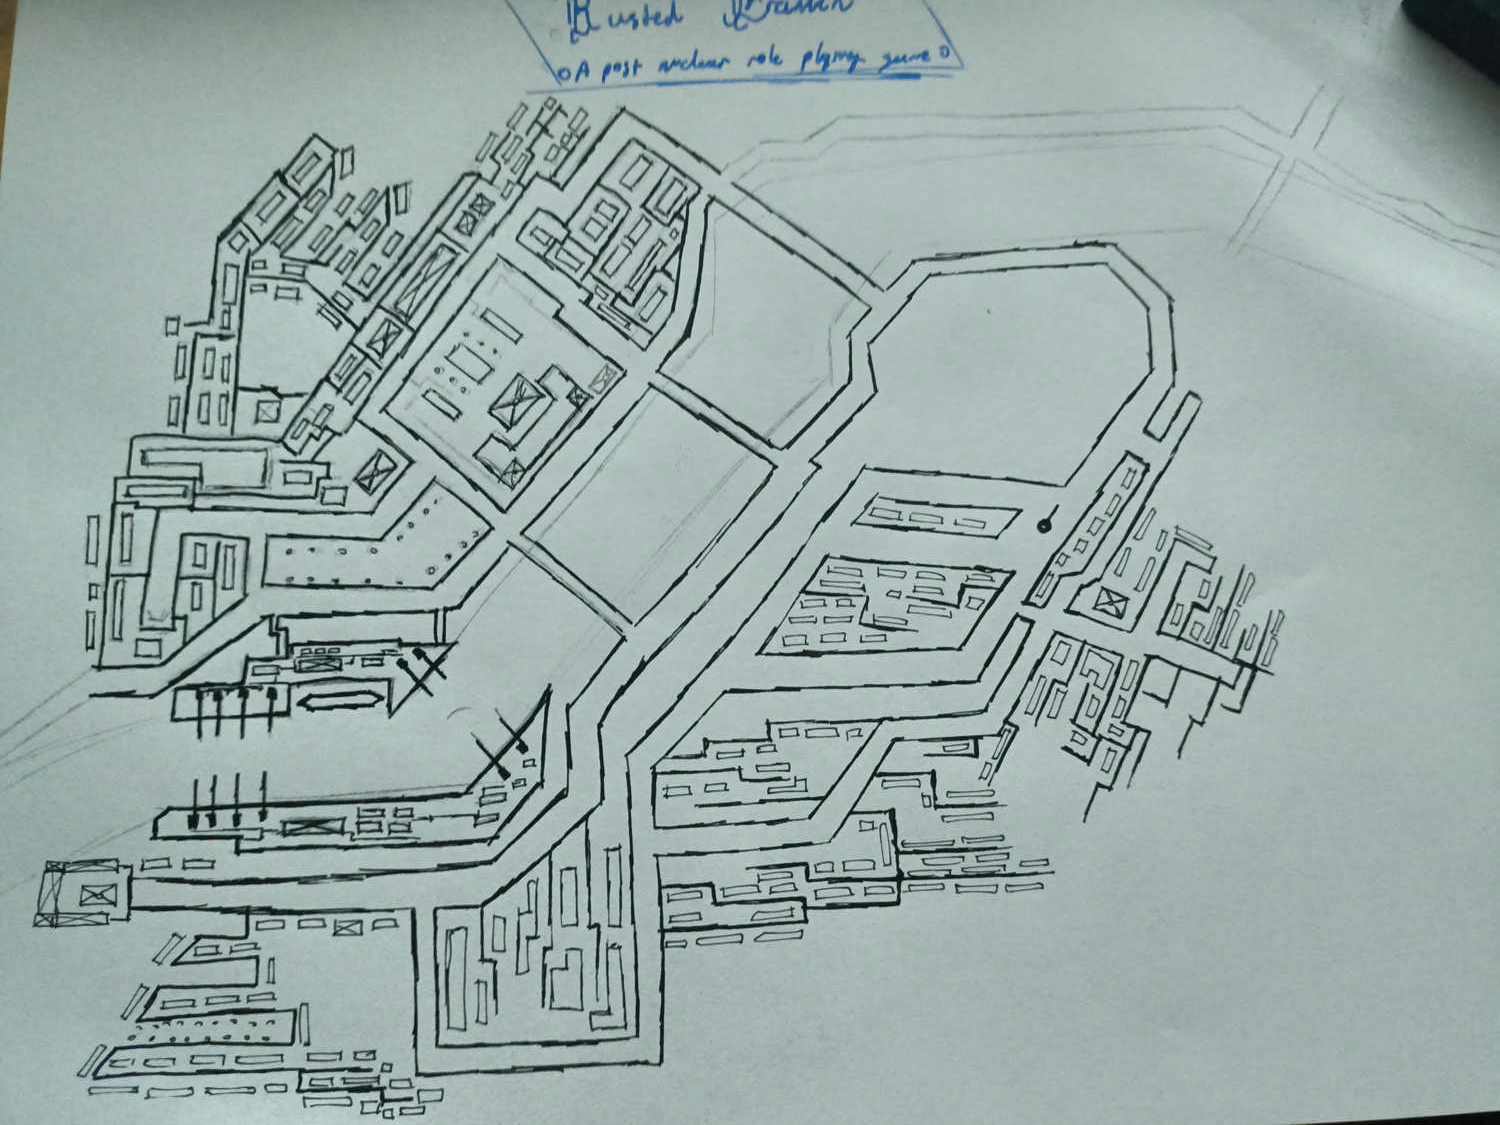 Rusted
A post nuclear role playing game